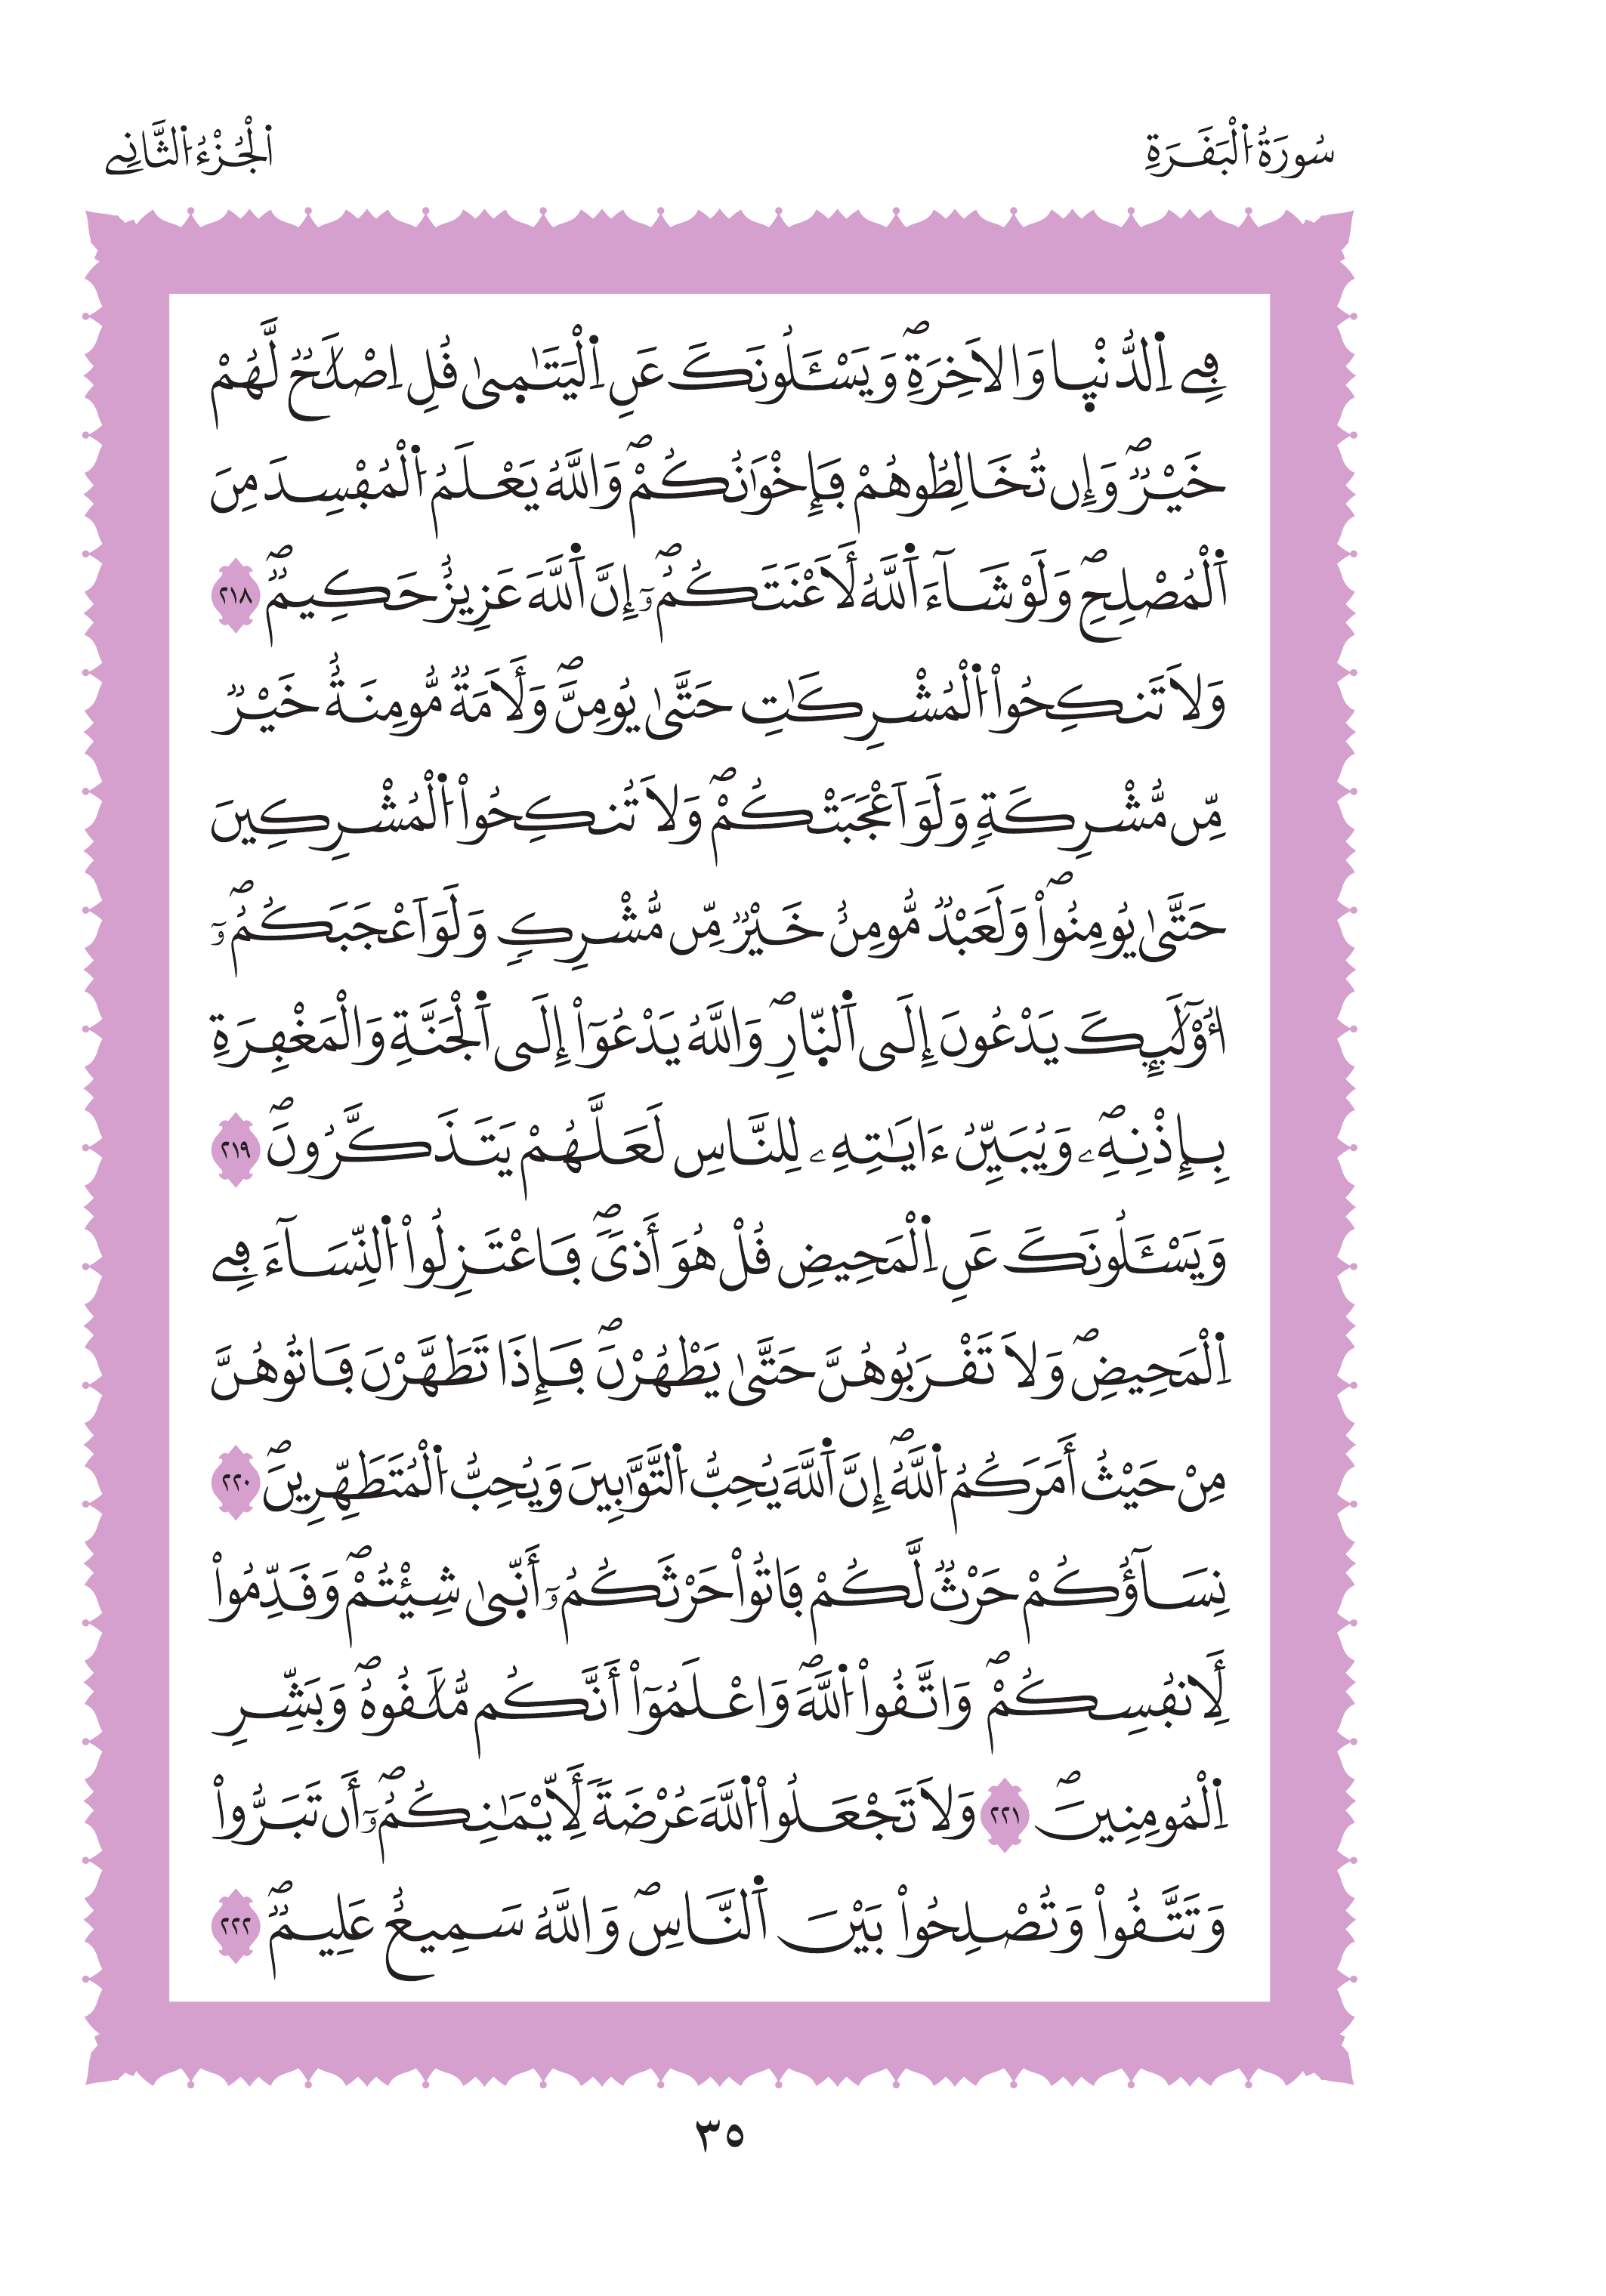 سُورَةُ اُ۬لْبَقَرَةِ
اَ۬لْجُزْءُ اُ۬لثَّانِے
فِے اِ۬لدُّنْي۪ا وَالَاخِرَةِۖ وَيَسْـَٔلُونَكَ عَنِ اِ۬لْيَتَٰم۪ىٰ قُلِ اِصْلَٰحٞ لَّهُمْ
خَيْرٞۖ وَإِن تُخَالِطُوهُمْ فَإِخْوَٰنُكُمْۖ وَاللَّهُ يَعْلَمُ اُ۬لْمُفْسِدَ مِنَ
اَ۬لْمُصْلِحِۖ وَلَوْ شَآءَ اَ۬للَّهُ لَأَعْنَتَكُمُۥٓۖ إِنَّ اَ۬للَّهَ عَزِيزٌ حَكِيمٞۖ ٢١٨
وَلَا تَنكِحُواْ اُ۬لْمُشْرِكَٰتِ حَتَّىٰ يُومِنَّۖ وَلَأَمَةٞ مُّومِنَةٌ خَيْرٞ
مِّن مُّشْرِكَةٖ وَلَوَ اَعْجَبَتْكُمْۖ وَلَا تُنكِحُواْ اُ۬لْمُشْرِكِينَ
حَتَّىٰ يُومِنُواْۖ وَلَعَبْدٞ مُّومِنٌ خَيْرٞ مِّن مُّشْرِكٖ وَلَوَ اَعْجَبَكُمُۥٓۖ
أُوْلَٰٓئِكَ يَدْعُونَ إِلَى اَ۬لنّ۪ارِۖ وَاللَّهُ يَدْعُوٓاْ إِلَى اَ۬لْجَنَّةِ وَالْمَغْفِرَةِ
بِإِذْنِهِۦۖ وَيُبَيِّنُ ءَايَٰتِهِۦ لِلنَّاسِ لَعَلَّهُمْ يَتَذَكَّرُونَۖ ٢١٩
وَيَسْـَٔلُونَكَ عَنِ اِ۬لْمَحِيضِ قُلْ هُوَ أَذىٗۖ فَاعْتَزِلُواْ اُ۬لنِّسَآءَ فِے
اِ۬لْمَحِيضِۖ وَلَا تَقْرَبُوهُنَّ حَتَّىٰ يَطْهُرْنَۖ فَإِذَا تَطَهَّرْنَ فَاتُوهُنَّ
مِنْ حَيْثُ أَمَرَكُمُ اُ۬للَّهُۖ إِنَّ اَ۬للَّهَ يُحِبُّ اُ۬لتَّوَّٰبِينَ وَيُحِبُّ اُ۬لْمُتَطَهِّرِينَۖ ٢٢٠
نِسَآؤُكُمْ حَرْثٞ لَّكُمْ فَاتُواْ حَرْثَكُمُۥٓ أَنّ۪ىٰ شِئْتُمْۖ وَقَدِّمُواْ
لِأَنفُسِكُمْۖ وَاتَّقُواْ اُ۬للَّهَۖ وَاعْلَمُوٓاْ أَنَّكُم مُّلَٰقُوهُۖ وَبَشِّرِ
اِ۬لْمُومِنِينَۖ ٢٢١ وَلَا تَجْعَلُواْ اُ۬للَّهَ عُرْضَةٗ لِّأَيْمَٰنِكُمُۥٓۖ أَن تَبَرُّواْ
وَتَتَّقُواْ وَتُصْلِحُواْ بَيْنَ اَ۬لنَّاسِۖ وَاللَّهُ سَمِيعٌ عَلِيمٞۖ ٢٢٢
٣٥